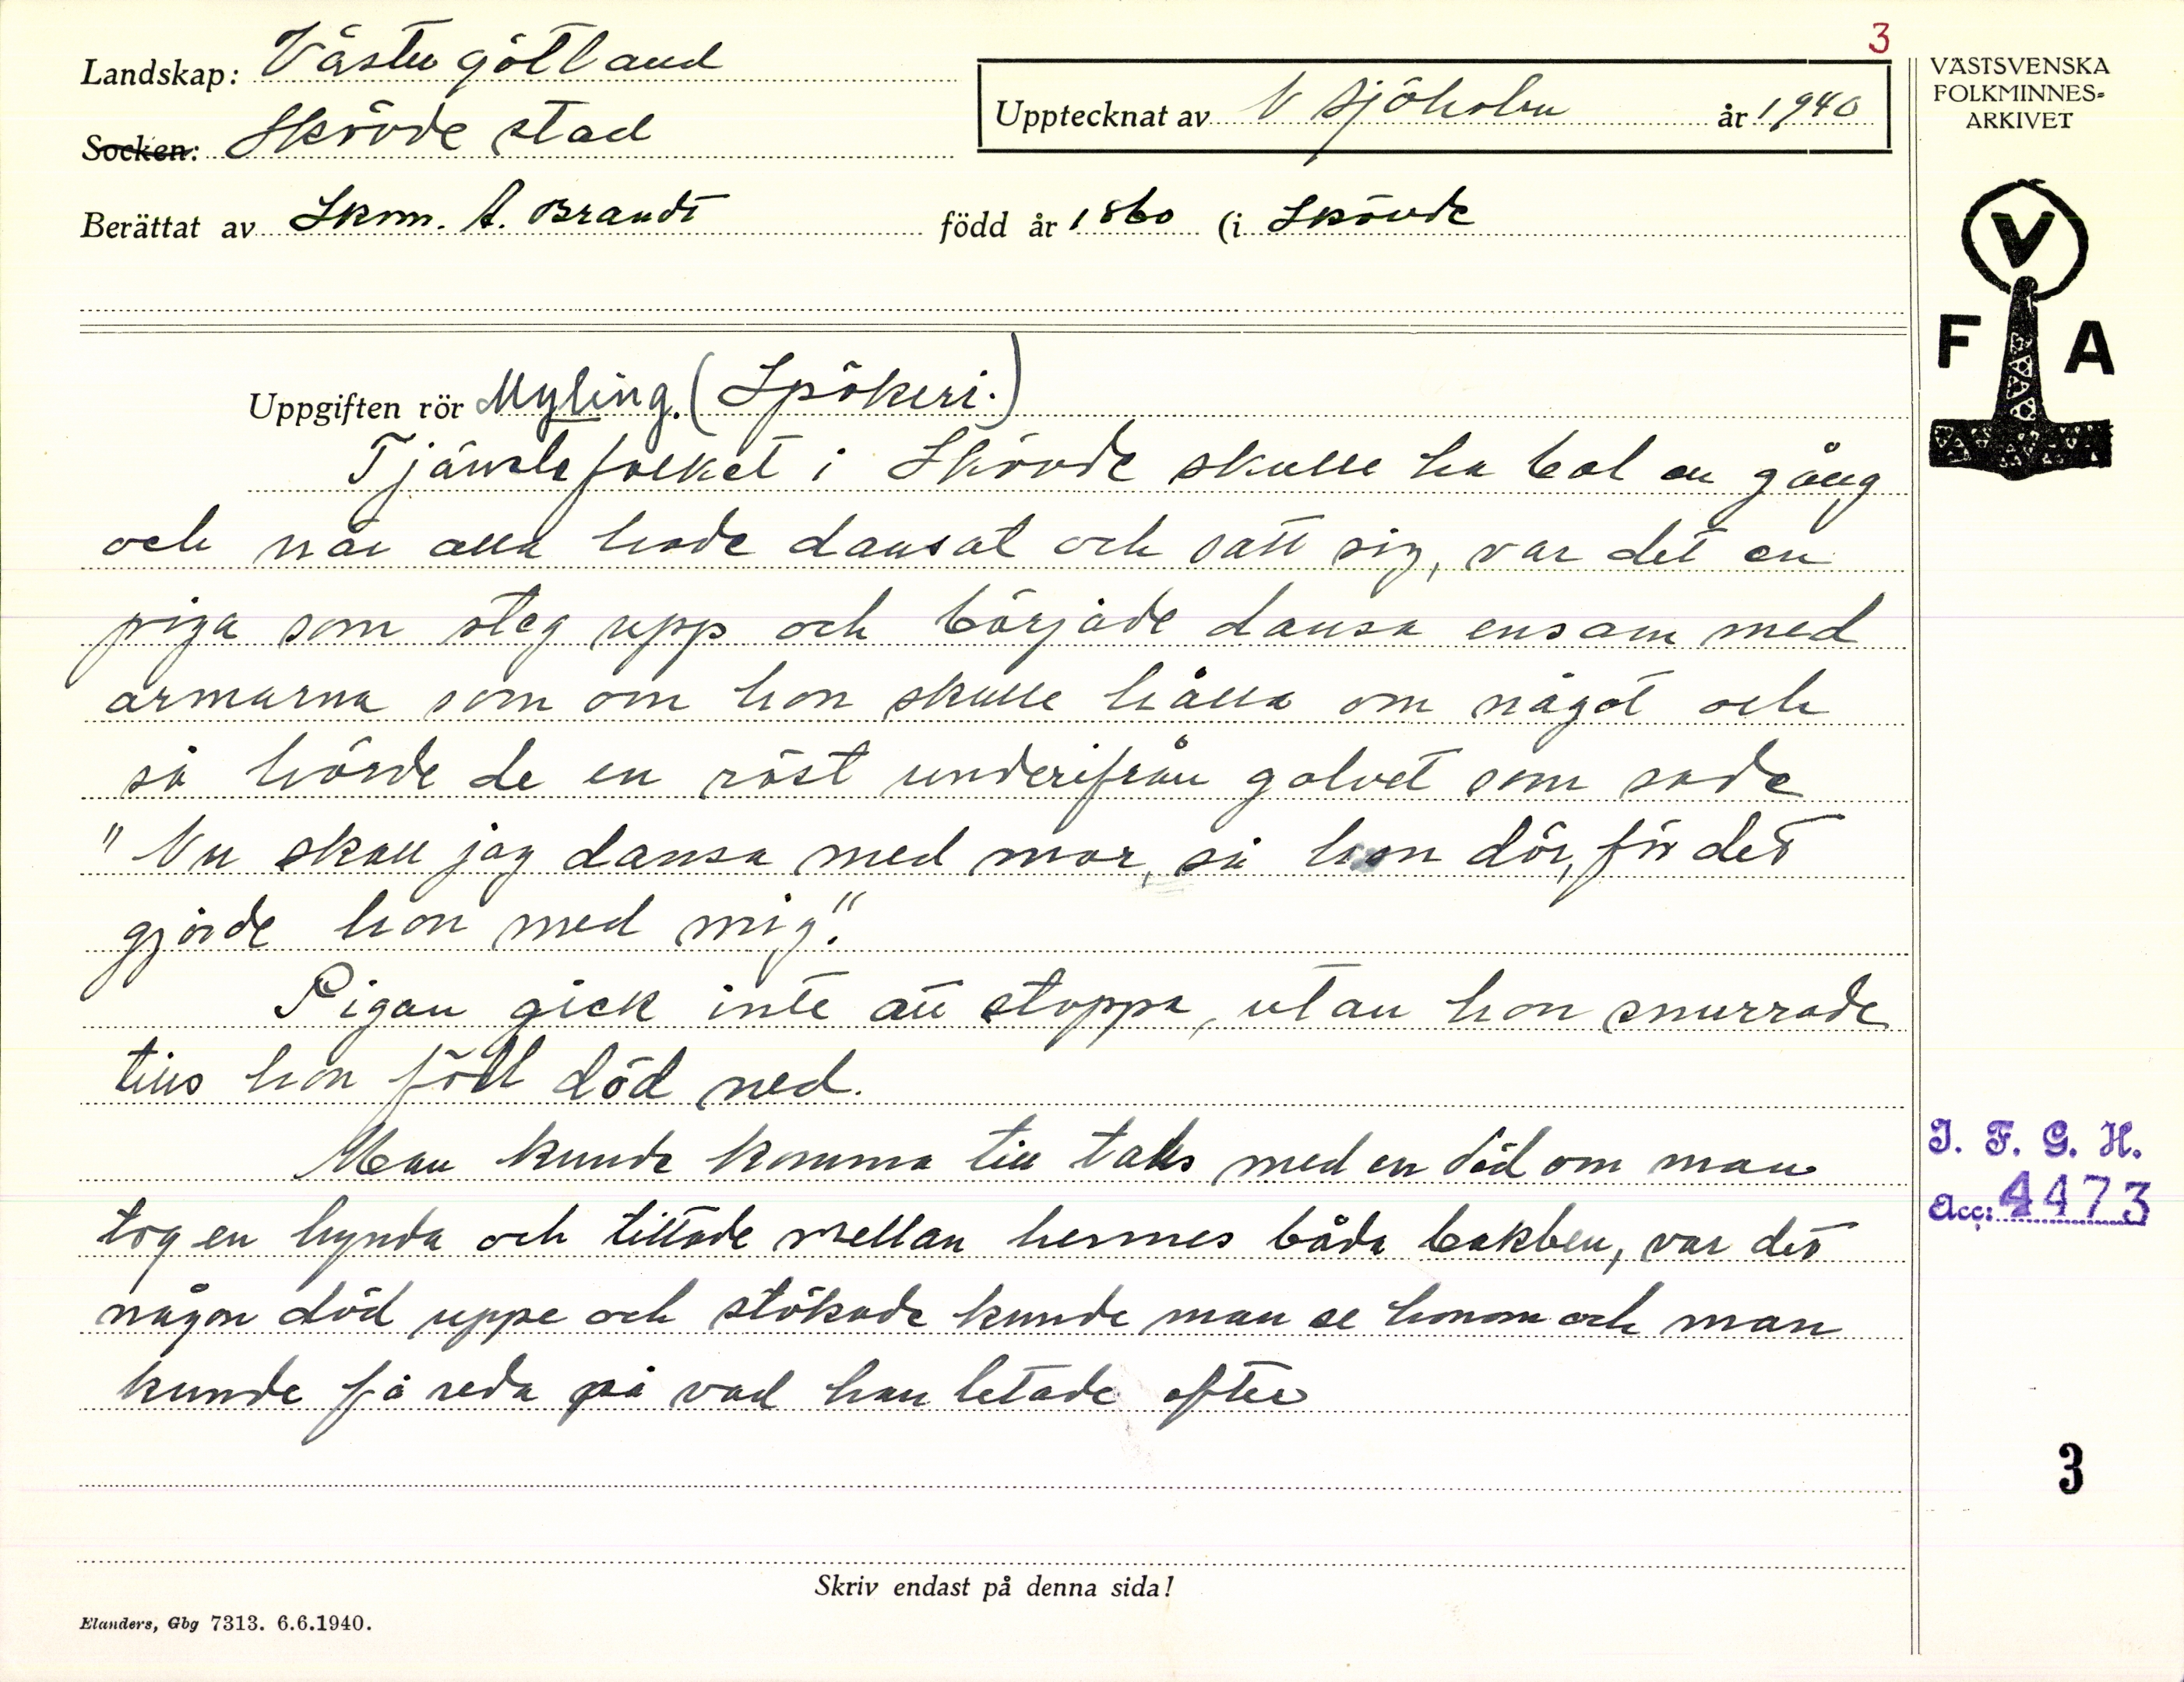 3
Landskap: Västergötland
Socken: Skövde stad
Upptecknat av N Sjöholm år 1940
Berättat av Skom. A. Brandt född år 1860 (i Skövde
VÄSTSVENSKA
FOLKMINNES-
ARKIVET
V
F A
Uppgiften rör Myling. (Spökeri.)
Tjänstefolket i Skövde skulle ha bal en gång
och när alla hade dansat och satt sig, var det en
piga som steg upp och började dansa ensam med
armarna som om hon skulle hålla om något och
så hörde de en röst underifrån golvet som sade
"Nu skall jag dansa med mor, så hon dör, för det
gjorde hon med mig".
Pigan gick inte att stoppa, utan hon snurrade
tills hon föll död ned.
Man kunde komma till tals med en död om man
tog en hynda och tittade mellan hennes båda bakben, var det
någon död uppe och stökade kunde man se honom och man
kunde få reda på vad han letade efter
I. F. G. H.
Acc: 4473
3
Skriv endast på denna sida!
Elanders, Gbg 7313. 6.6.1940.